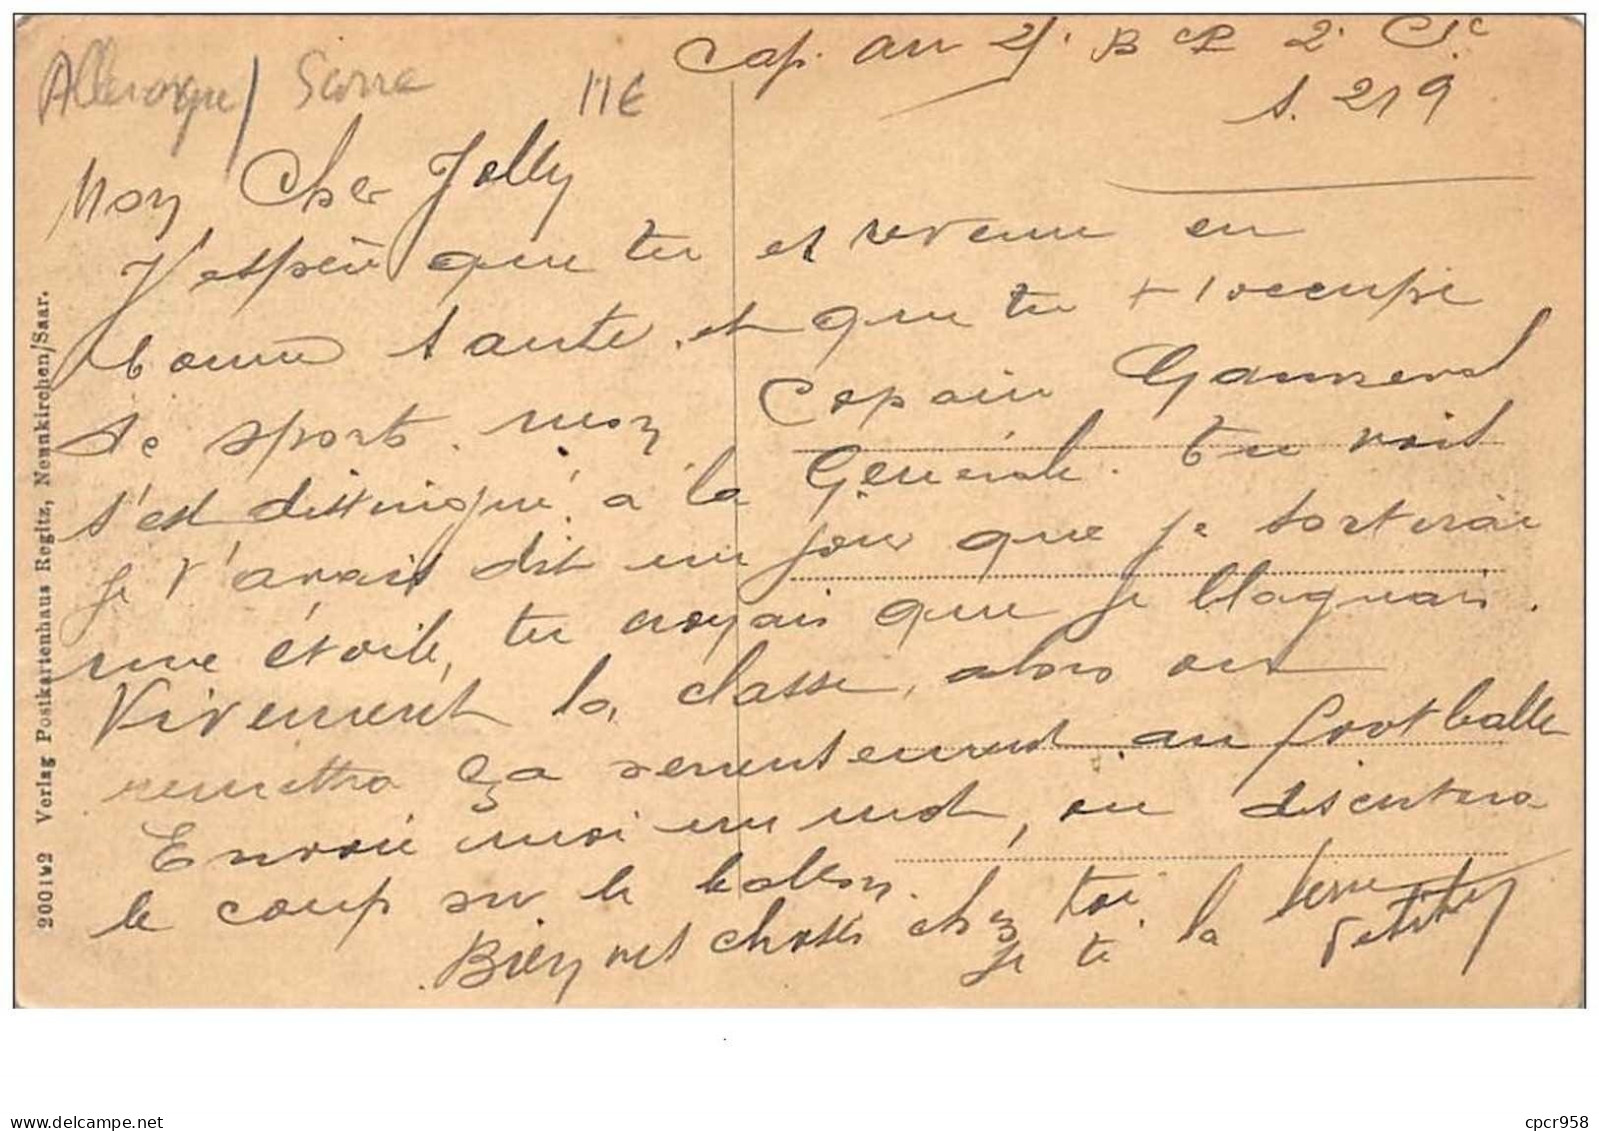 Cap. au 21. B CP 2e Cie
S. 219
Allemagne / Sarre 11€
Mon Cher Jolly
J'espère que tu et revenu en
bonne santé, et que tu t'occupe
de sport. mon Copain
s'est distingué à la Générale. tu vois
je t'avais dit un jour que je sortirai
une étoile, tu croyais que je blaguais.
Vivement la classe, alors on
remettra ça serieusement au football
Envoie moi un mot, on discutera
le coup sur le ballon.
Bien des choses chez toi
Je te la serre
200192 Verlag Postkartenhaus Regitz, Neunkirchen/Saar.
delcampe.net
cpcr958